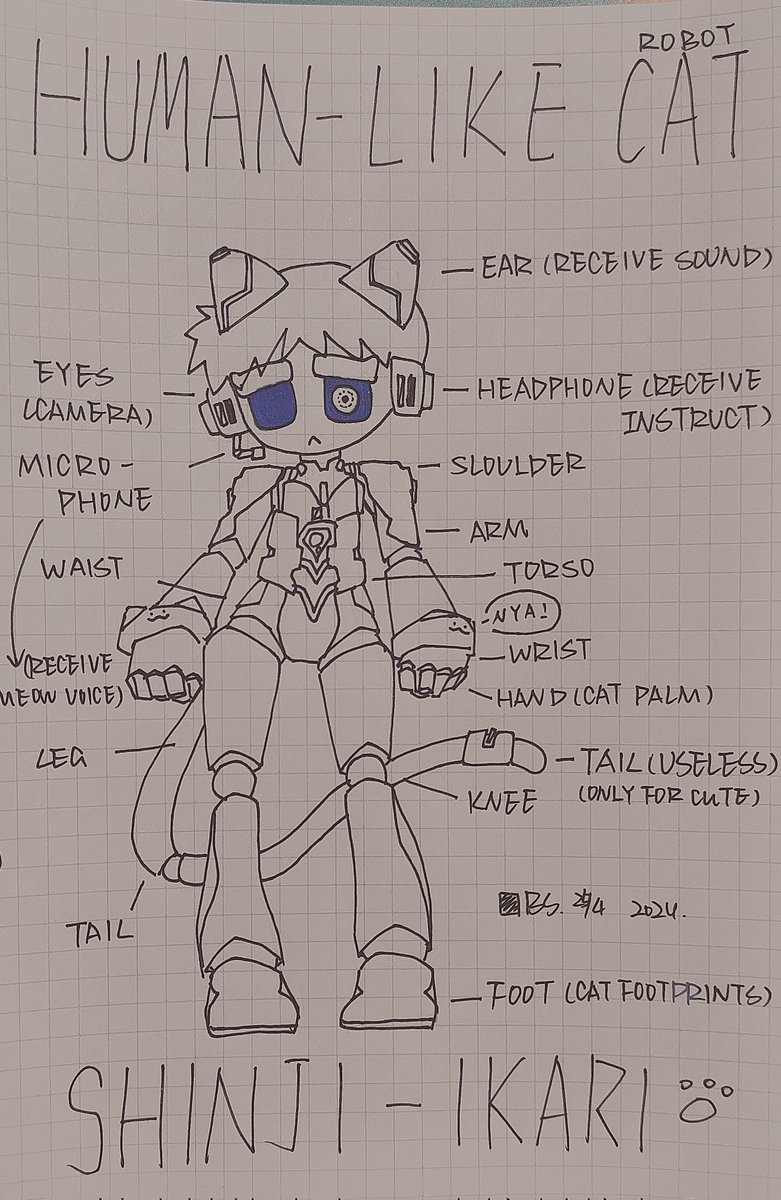 ROBOT
HUMAN-LIKE CAT
EAR (RECEIVE SOUND)
EYES
(CAMERA)
HEADPHONE (RECEIVE
INSTRUCT)
MICRO-
PHONE
SLOULDER
ARM
WAIST
TORSO
NYA!
WRIST
(RECEIVE
MEOW VOICE)
HAND (CAT PALM)
LEG
TAIL (USELESS)
(ONLY FOR CUTE)
KNEE
BS. 2024.
TAIL
FOOT (CAT FOOTPRINTS)
SHINJI-IKARI